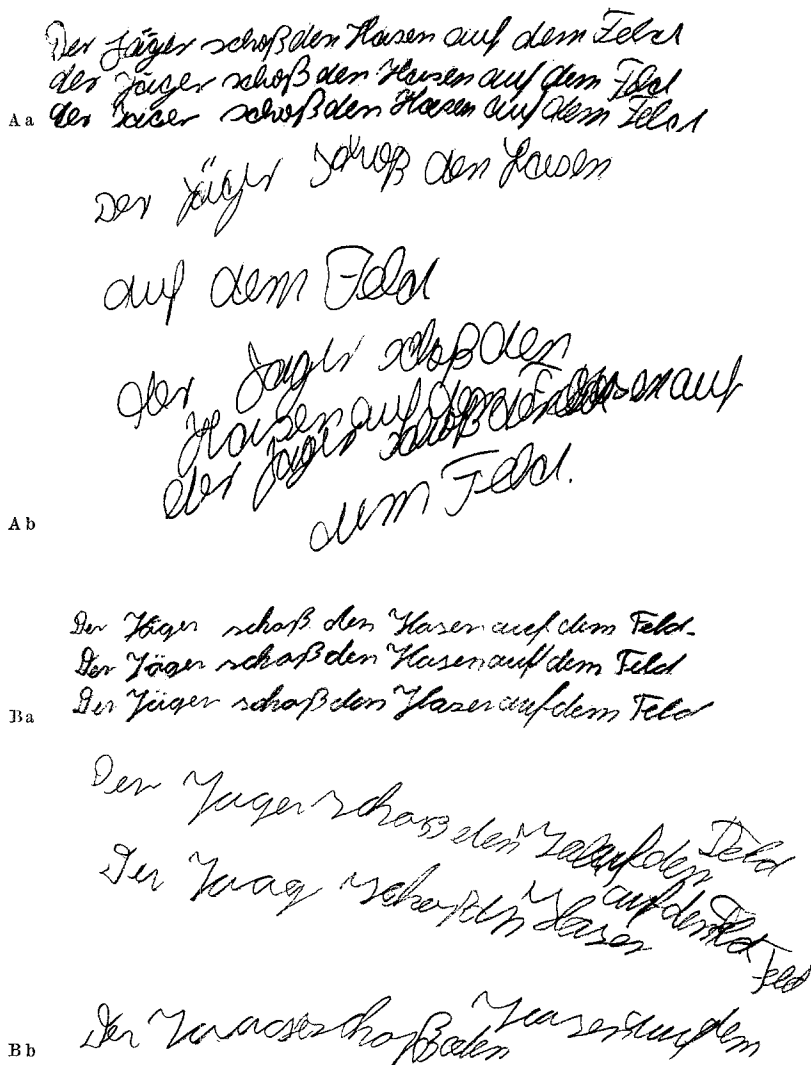 Der Jäger schoß den Hasen auf dem Feld
der Jäger schoß den Hasen auf dem Feld
Aa der Jäger schoß den Hasen auf dem Feld
Der Jäger schoß den Hasen
auf dem Feld
der Jäger schoß den
Hasen auf dem
der Jäger schoß den Hasen auf
dem Feld.
Ab
Der Jäger schoß den Hasen auf dem Feld.
Der Jäger schoß den Hasen auf dem Feld
Ba Der Jäger schoß den Hasen auf dem Feld
Der Jager schoß den auf den Feld
Der Jaag schoß den Hasen auf dem Feld
Feld
Bb Der schoß den Hasen auf dem